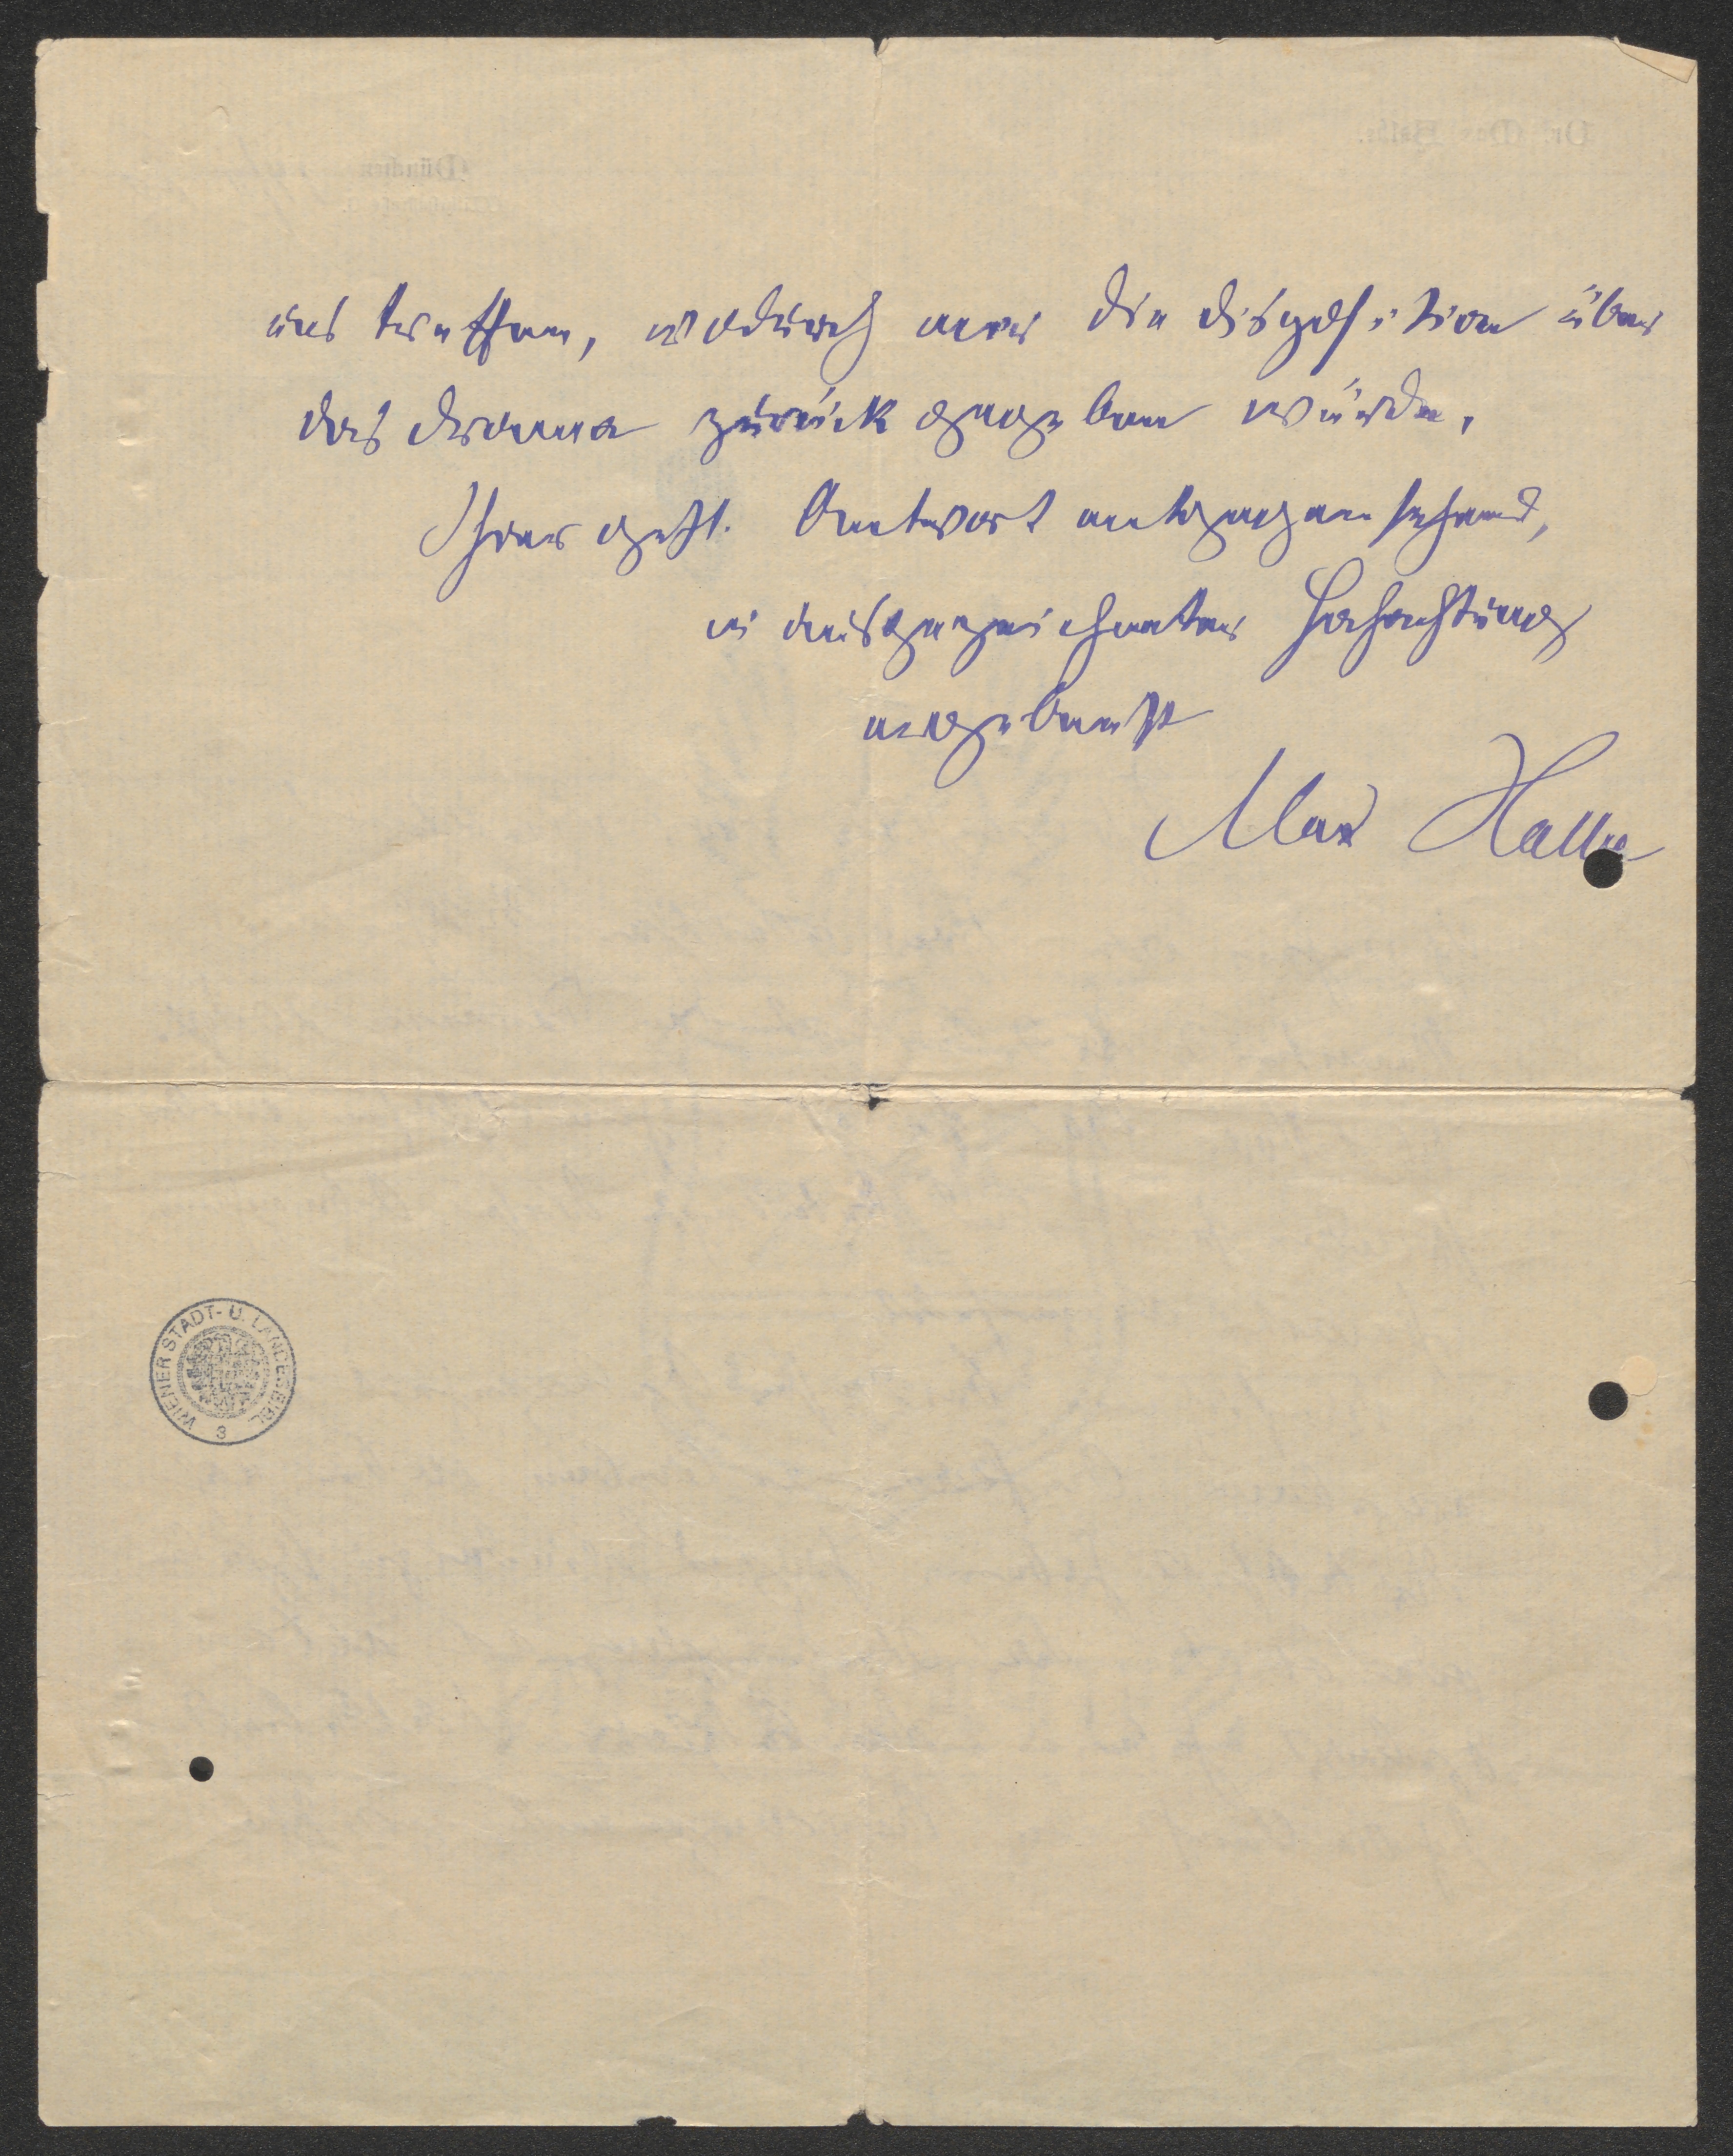 uns treffen, wodurch mir die Disposition über
das Drama zurückgegeben würde.
Ihrer gefl. Antwort entgegensehend,
in ausgezeichneter Hochachtung
ergebenst
Max Halbe
WIENER STADT- U. LANDESBIBL.
3